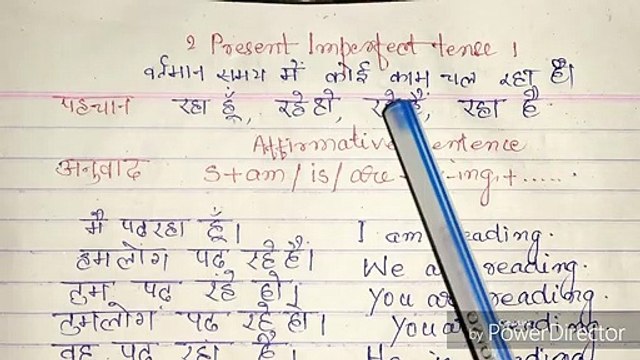 2 Present Imperfect tense।
वर्तमान समय में कोई काम चल रहा है।
पहचान रहा हूँ, रहे हो, रहे हैं, रहा है
Affirmative Sentence
अनुवाद S+am/is/are ing+......
मै पढ रहा हूँ। I am reading.
हमलोग पढ रहे हैं। We are reading.
तुम पढ रहे हो। You are reading.
तुमलोग पढ रहे हो। You are reading.
वह पढ रहा है। He is reading
by PowerDirector